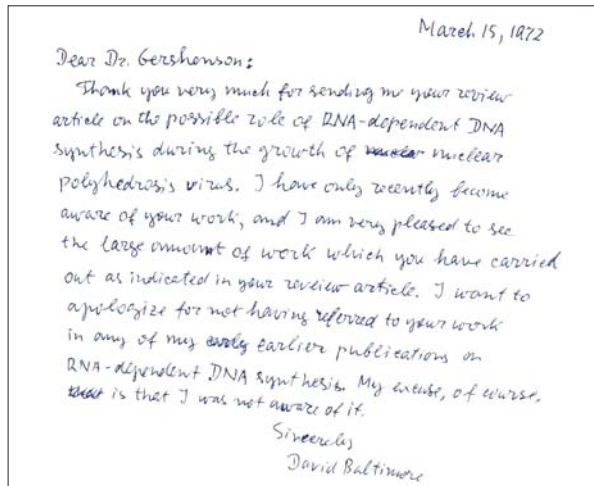 March 15, 1972
Dear Dr. Gershenson:
Thank you very much for sending me your review
article on the possible role of RNA-dependent DNA
synthesis during the growth of nuclear
polyhedrosis virus. I have only recently become
aware of your work, and I am very pleased to see
the large amount of work which you have carried
out as indicated in your review article. I want to
apologize for not having referred to your work
in any of my early earlier publications on
RNA-dependent DNA synthesis. My excuse, of course,
that is that I was not aware of it.
Sincerely
David Baltimore